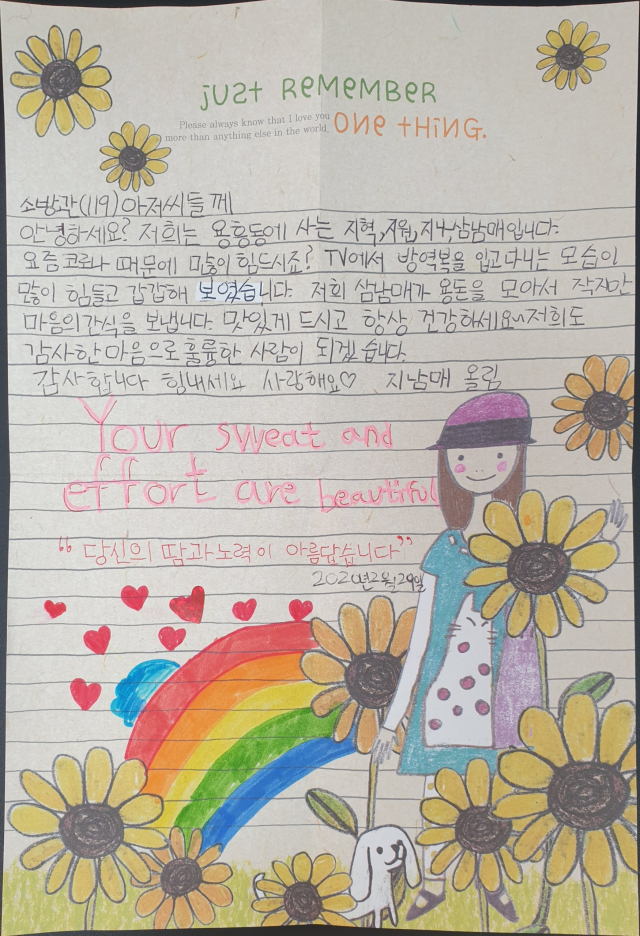 just REMEMBER
Please always know that I love you
more than anything else in the world.
ONE tHiNG.
소방관(119)아저씨들께
안녕하세요? 저희는 용흥동에 사는 지혁,지원,지나,삼남매입니다.
요즘코로나 때문에 많이 힘드시죠? TV에서 방역복을 입고다니는 모습이
많이 힘들고 갑갑해 보였습니다. 저희 삼남매가 용돈을 모아서 작지만
마음의간식을 보냅니다. 맛있게 드시고 항상 건강하세요~저희도
감사한마음으로 훌륭한 사람이 되겠습니다.
감사합니다 힘내세요 사랑해요♡ 지남매 올림
Your sweat and
effort are beautiful
"당신의 땀과노력이 아름답습니다"
2020년2월29일